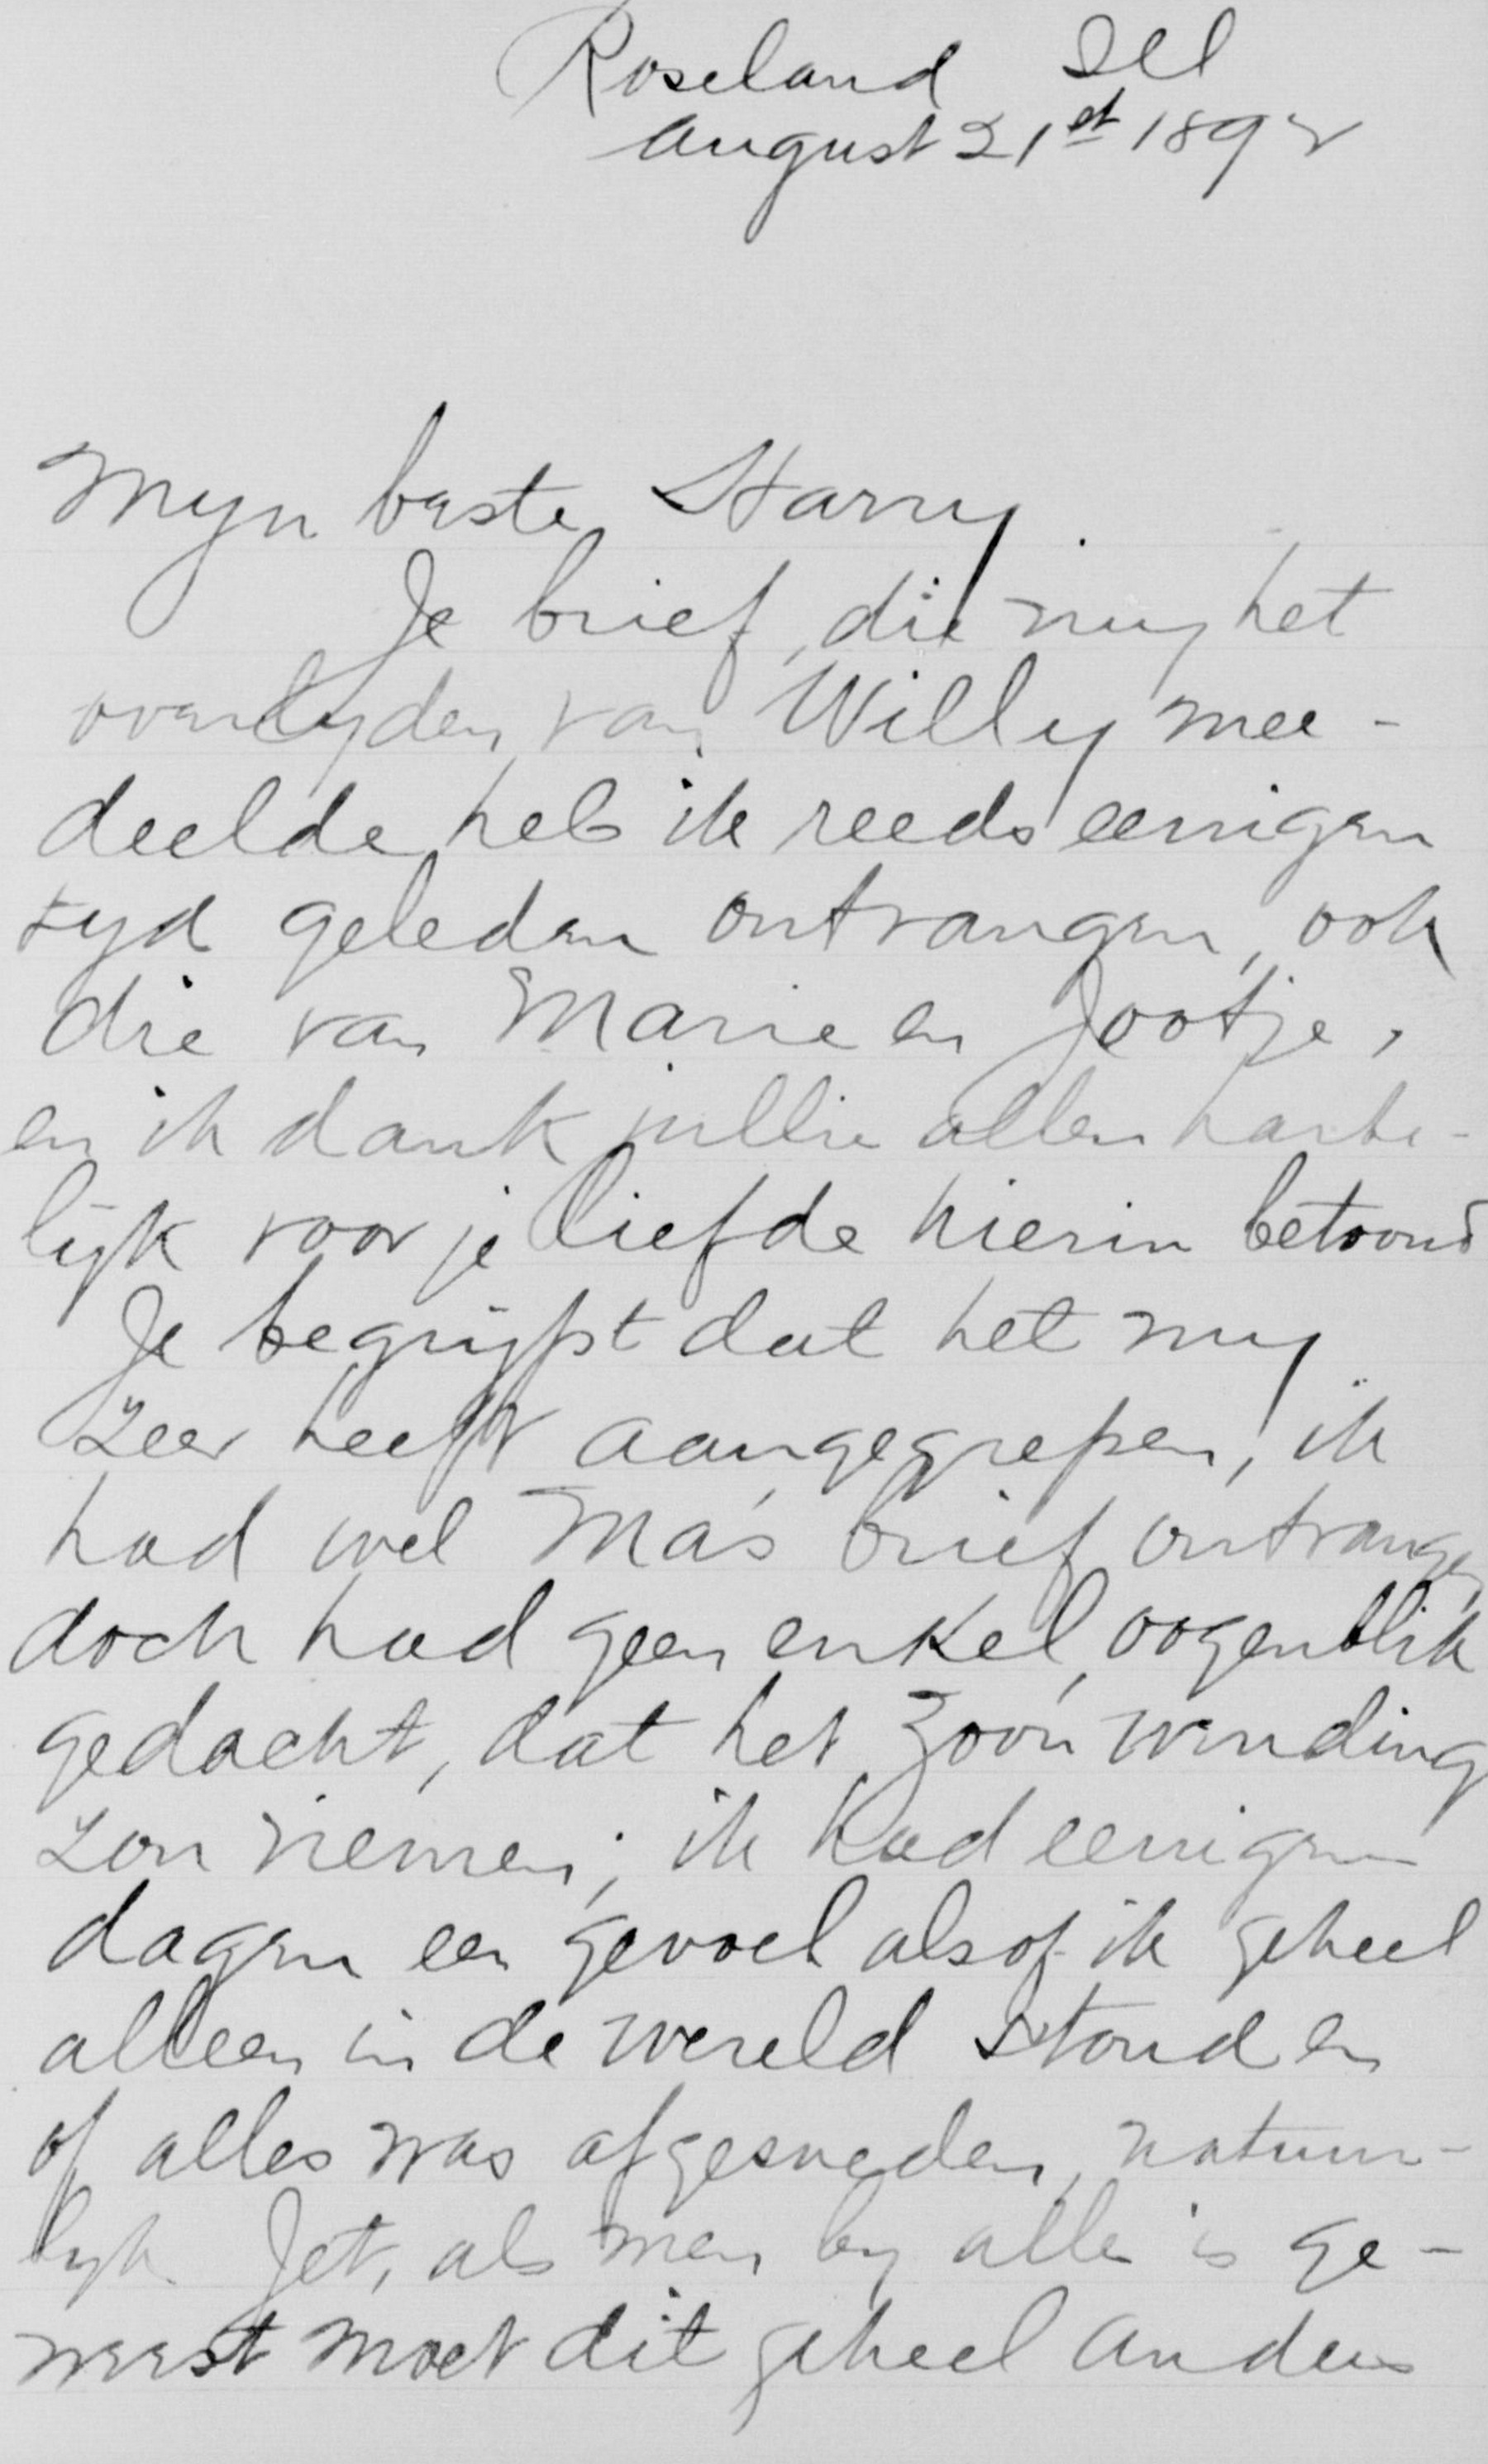 Roseland Ill
August 21st 1892
Myn beste Harry.
Je brief, die my het
overlyden van Willy mee-
deelde heb ik reeds eenigen
tyd geleden ontvangen, ook
die van Marie en Jootje,
en ik dank jullie allen harte-
lijk voor je liefde hierin betoond
Je begrijpt dat het my
zeer heeft aangegrepen, ik
had wel Ma's brief ontvangen
doch had geen enkel oogenblik
gedacht, dat het zoo'n wending
zou nemen; ik had eenigen
dagen een gevoel alsof ik geheel
alleen in de wereld stond en
of alles was afgesneden, natuur-
lyk Jet, als men by alles is ge-
weest moet dit geheel anders